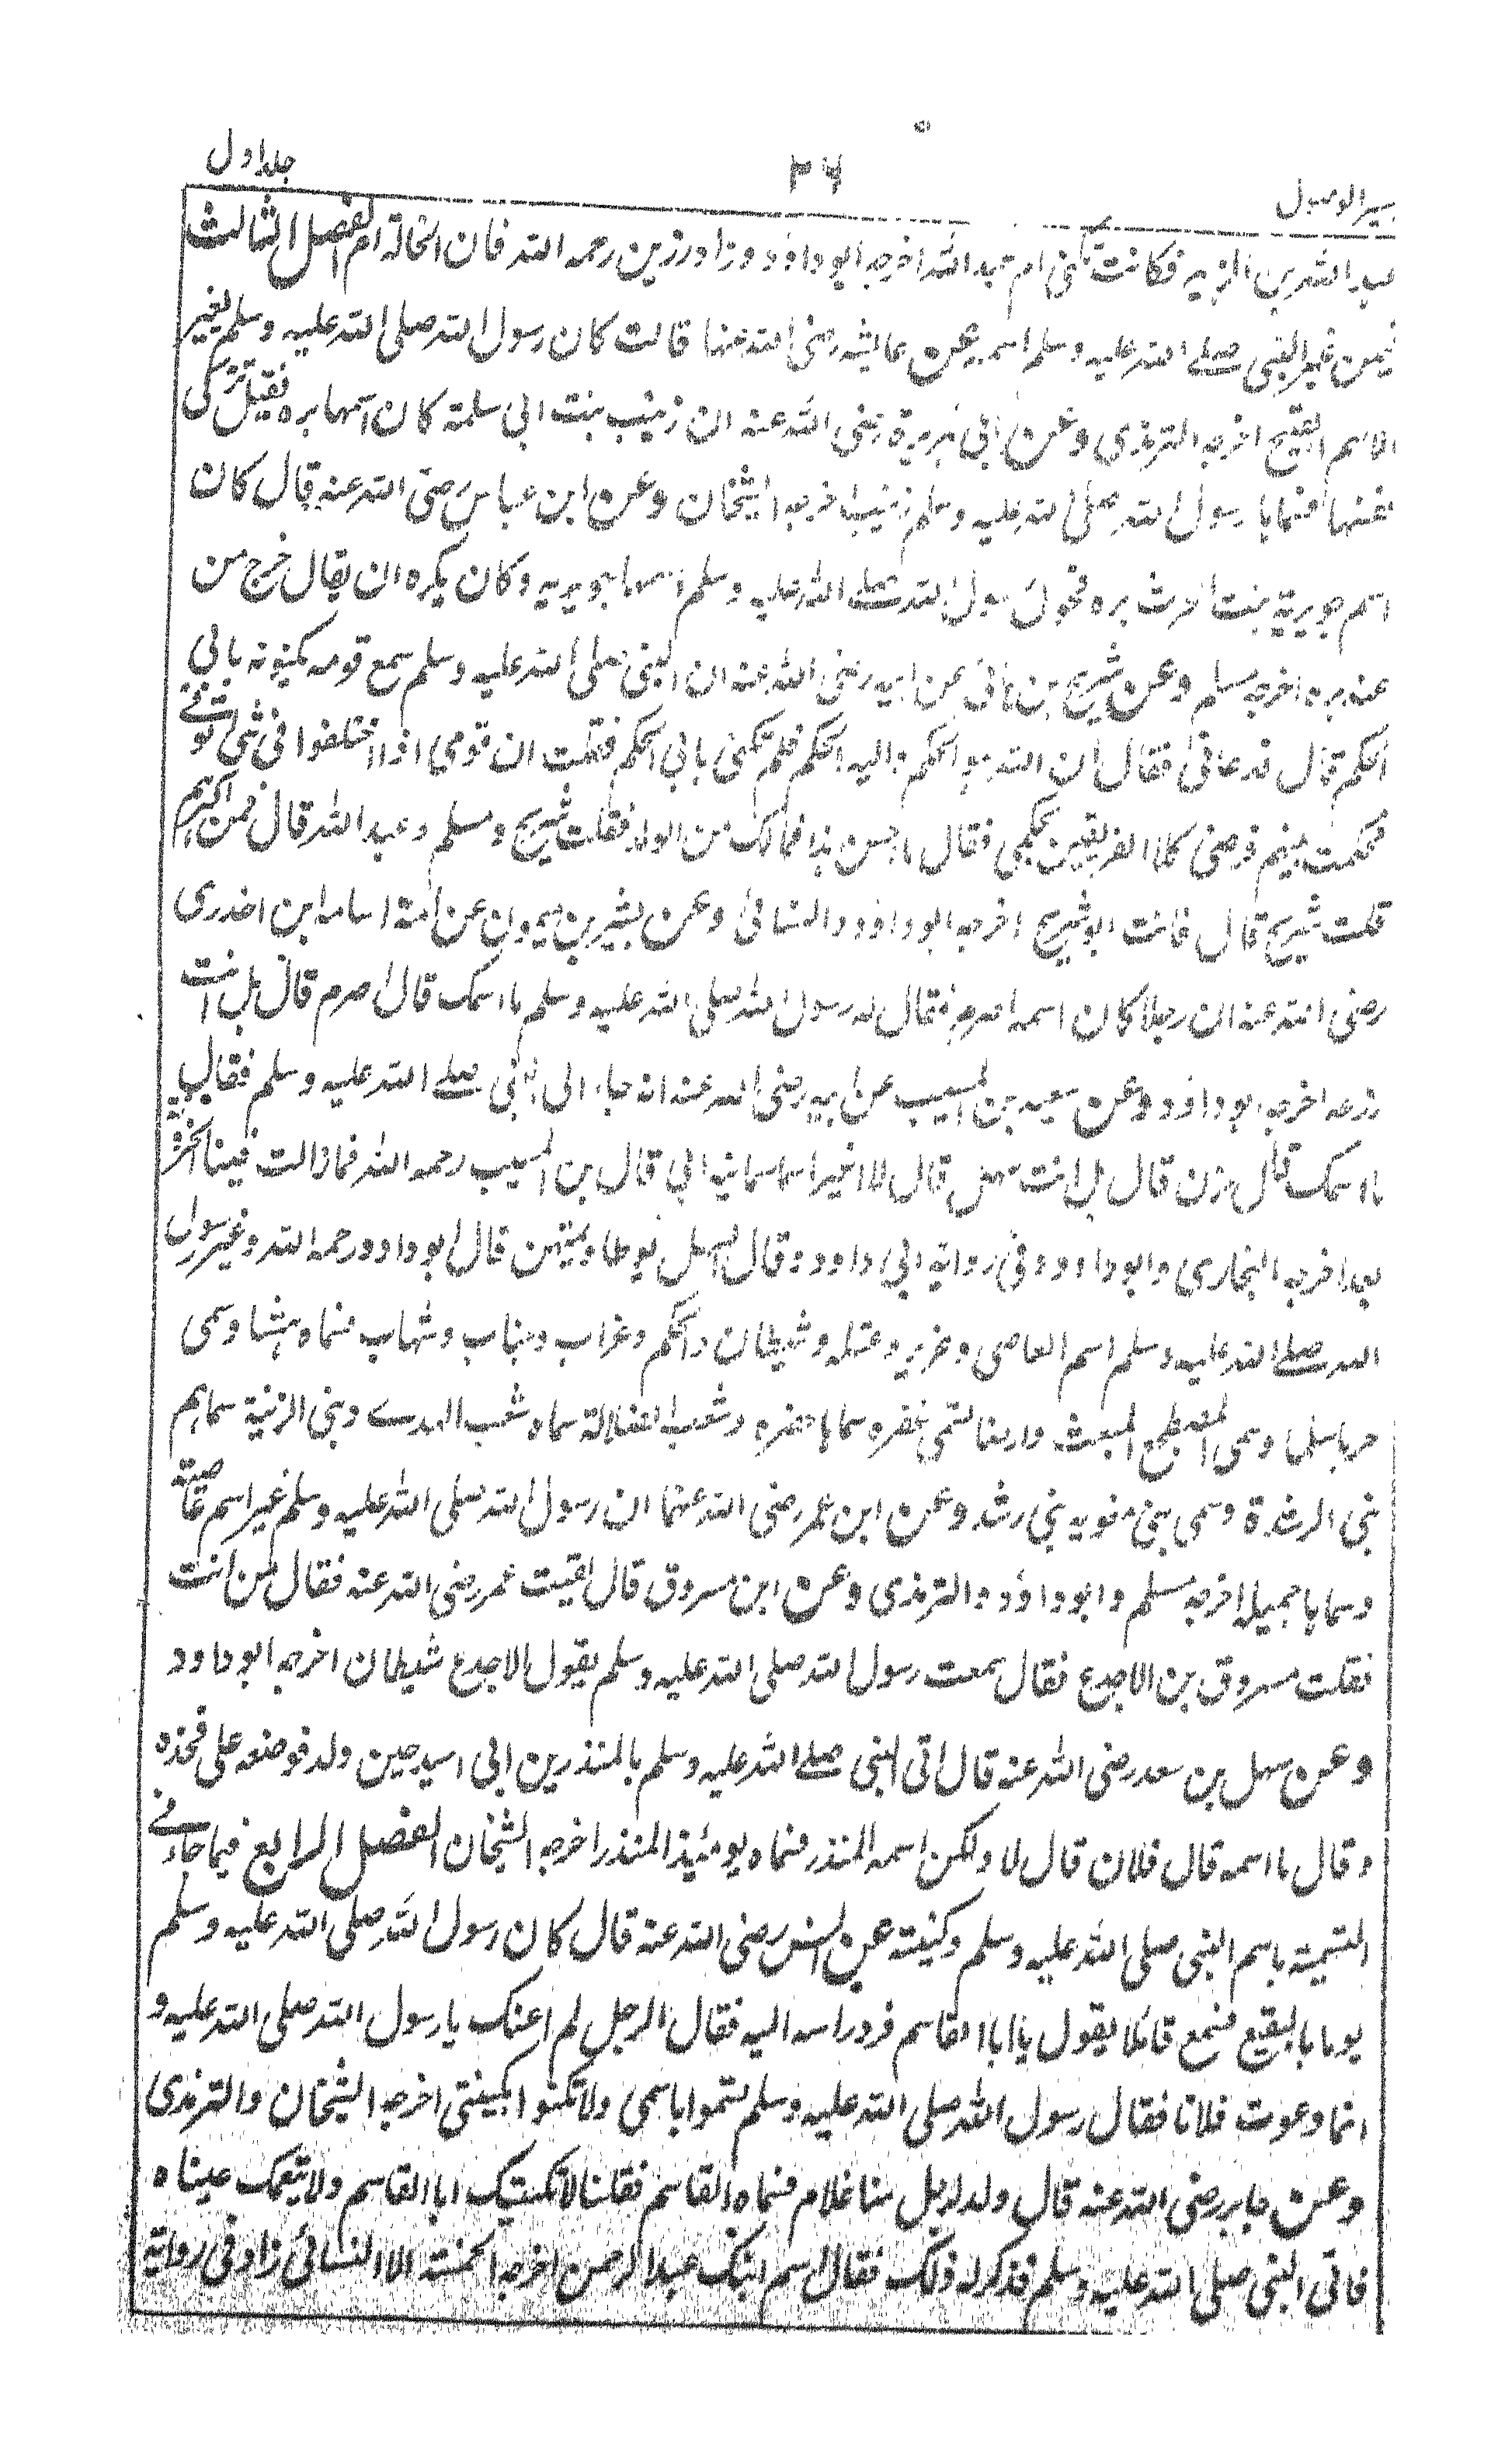 جلد اول
٣٦
سير الوصول
عبد الله بن الزبير فكانت تكنى ام عبد الله اخرجه ابو داؤد وزاد رزين رحمه الله فان الخالة ام الفصل الثالث
فيمن غير النبي صلے الله عليه وسلم اسمه عن عايشه رضى الله عنها قالت كان رسول الله صلى الله عليه وسلم يغير
الاسم القبيح اخرجه الترمذى وعن ابى هريرة رضى الله عنه ان زينب بنت ابى سلمة كان اسمها بره فقيل تزكى
نفسها فسماها رسول الله صلى الله عليه وسلم زينب اخرجه الشيخان وعن ابن عباس رضى الله عنه قال كان
اسم جويرية بنت الحرث بره فحول رسول الله صلے الله عليه وسلم اسمها جويريه وكان يكره ان يقال خرج من
عند بره اخرجه مسلم وعن شريح بن هانى عن ابيه رضى الله عنه ان النبى صلى الله عليه وسلم سمع قومه يكنونه بابى
الحكم قال فدعانى فقال ان الله هو الحكم واليه الحكم فلم تكنى بابى الحكم فقلت ان قومي اذا اختلفوا فى شئ اتونے
فحكمت بينهم فرضى كلا الفريقين بحكمى فقال ما احسن هذا فمالك من الولد فقلت شريح ومسلم وعبد الله قال فمن اكبرهم
قلت شريح قال فانت ابو شريح اخرجه ابو داؤد والنسائى وعن بشير بن ميمون عن عمه اسامه ابن اخدرى
رضى الله عنه ان رجلا كان اسمه اصرم فقال له رسول الله صلى الله عليه وسلم ما اسمك قال اصرم قال بل انت
زرعه اخرجه ابو داؤد وعن سعيد بن المسيب عن ابيه رضى الله عنه انه جاء الى النبى صلے الله عليه وسلم فقال له
ما اسمك قال حزن قال بل انت سهل قال لا اغير اسما سمانيه ابى قال بن المسيب رحمه الله فما زالت فينا الحزونة
بعد اخرجه البخارى وابو داود وفى رواية ابى داود وقال السهل يوطا ويمتهن قال ابو داود رحمه الله وغير رسول
الله صلے الله عليه وسلم اسم العاصى وعزيز وعتله وشيطان والحكم وغراب وحباب وشهاب فسماه هشاما وسمى
حربا سلما وسمى المضطجع المنبعث وارضا تسمى عفره سماها خضره وشعب الضلالة سماه شعب الهدے وبنى الزنية سماهم
بنى الرشدة وسمى بنى مغويه بنى رشد وعن ابن عمر رضى الله عنهما ان رسول الله صلى الله عليه وسلم غير اسم عاصية
وسماها جميلة اخرجه مسلم وابو داؤد والترمذى وعن ابن مسروق قال لقيت عمر رضى الله عنه فقال من انت
فقلت مسروق بن الاجدع فقال سمعت رسول الله صلى الله عليه وسلم يقول الاجدع شيطان اخرجه ابو داود
وعن سهل بن سعد رضى الله عنه قال اتى النبى صلے الله عليه وسلم بالمنذر بن ابى اسيد حين ولد فوضعه على فخذه
وقال ما اسمه قال فلان قال لا ولكن اسمه المنذر فسماه يومئيذ المنذر اخرجه الشيخان الفصل الرابع فيما جاء فے
التسمية باسم النبى صلى الله عليه وسلم وكنيته عن انس رضى الله عنه قال كان رسول الله صلى الله عليه وسلم
يوما بالبقيع فسمع قائلا يقول يا ابا القاسم فرد راسه اليه فقال الرجل لم اعنك يا رسول الله صلى الله عليه و
انما دعوت فلانا فقال رسول الله صلى الله عليه وسلم تسموا باسمى ولا تكنوا بكنيتى اخرجه الشيخان والترمذى
وعن جابر رضى الله عنه قال ولد لرجل منا غلام فسماه القاسم فقلنا لا نكنيك ابا القاسم ولا ننعمك عينا ه
فاتى النبى صلى الله عليه وسلم فذكر له ذلك فقال اسم ابنك عبد الرحمن اخرجه الخمسة الا النسائى زاد فى رواية